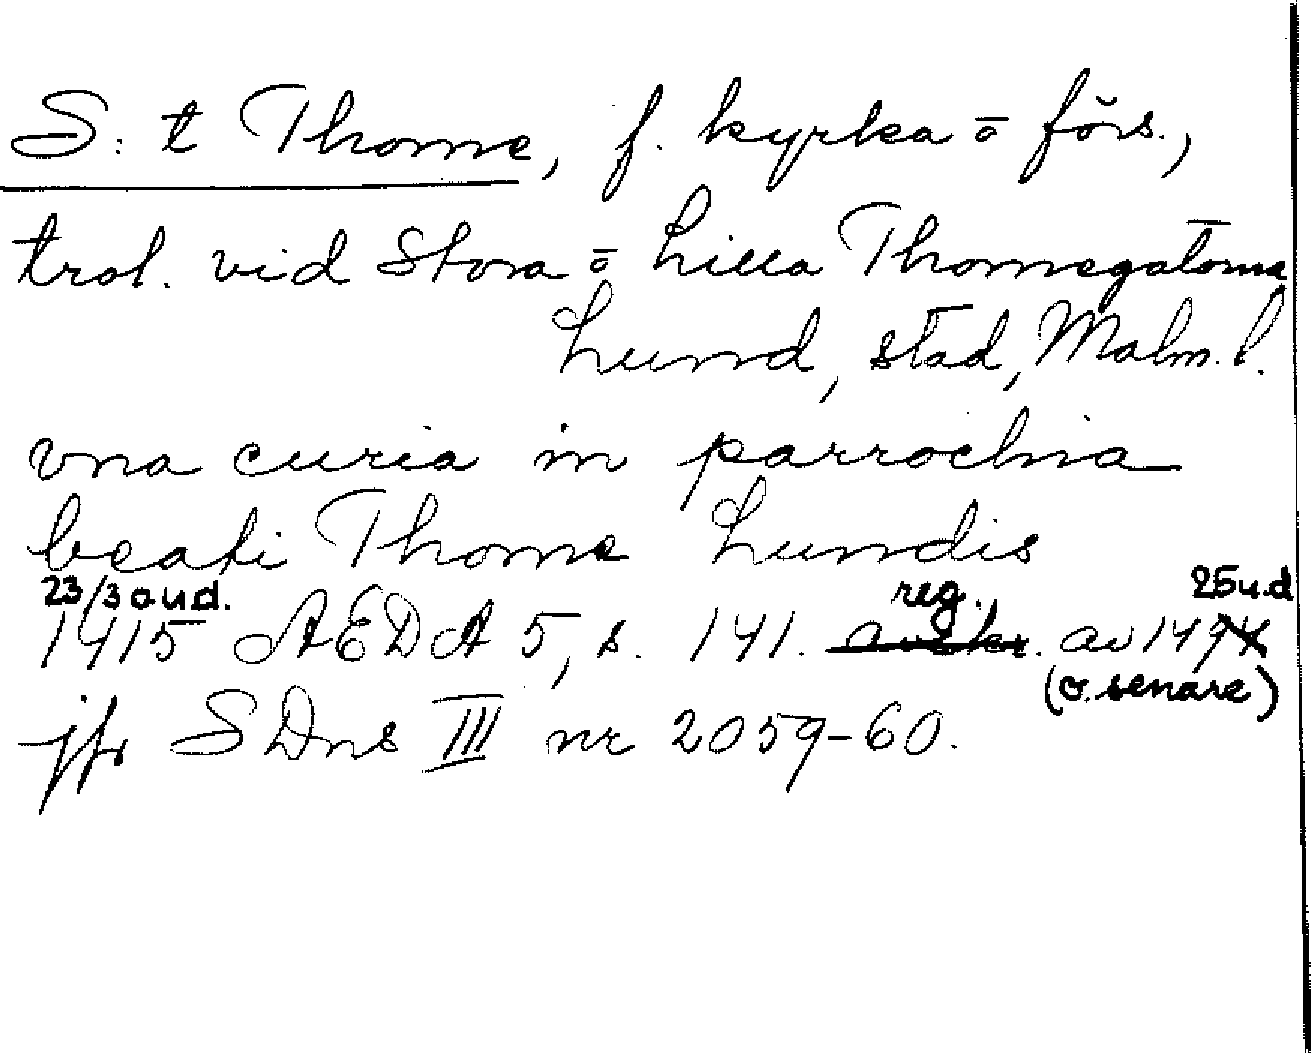 S:t Thome, f. kyrka o förs.,
trol. vid Stora o Lilla Thomegatorna
Lund, stad, Malm. l.
vna curia in parrochia
beati Thome Lundis
23/3 o u d. reg. 25 u. d
1415 AEDA 5, s. 141. avskr. av 1494
(o. senare)
jfr SDns III nr 2059-60.